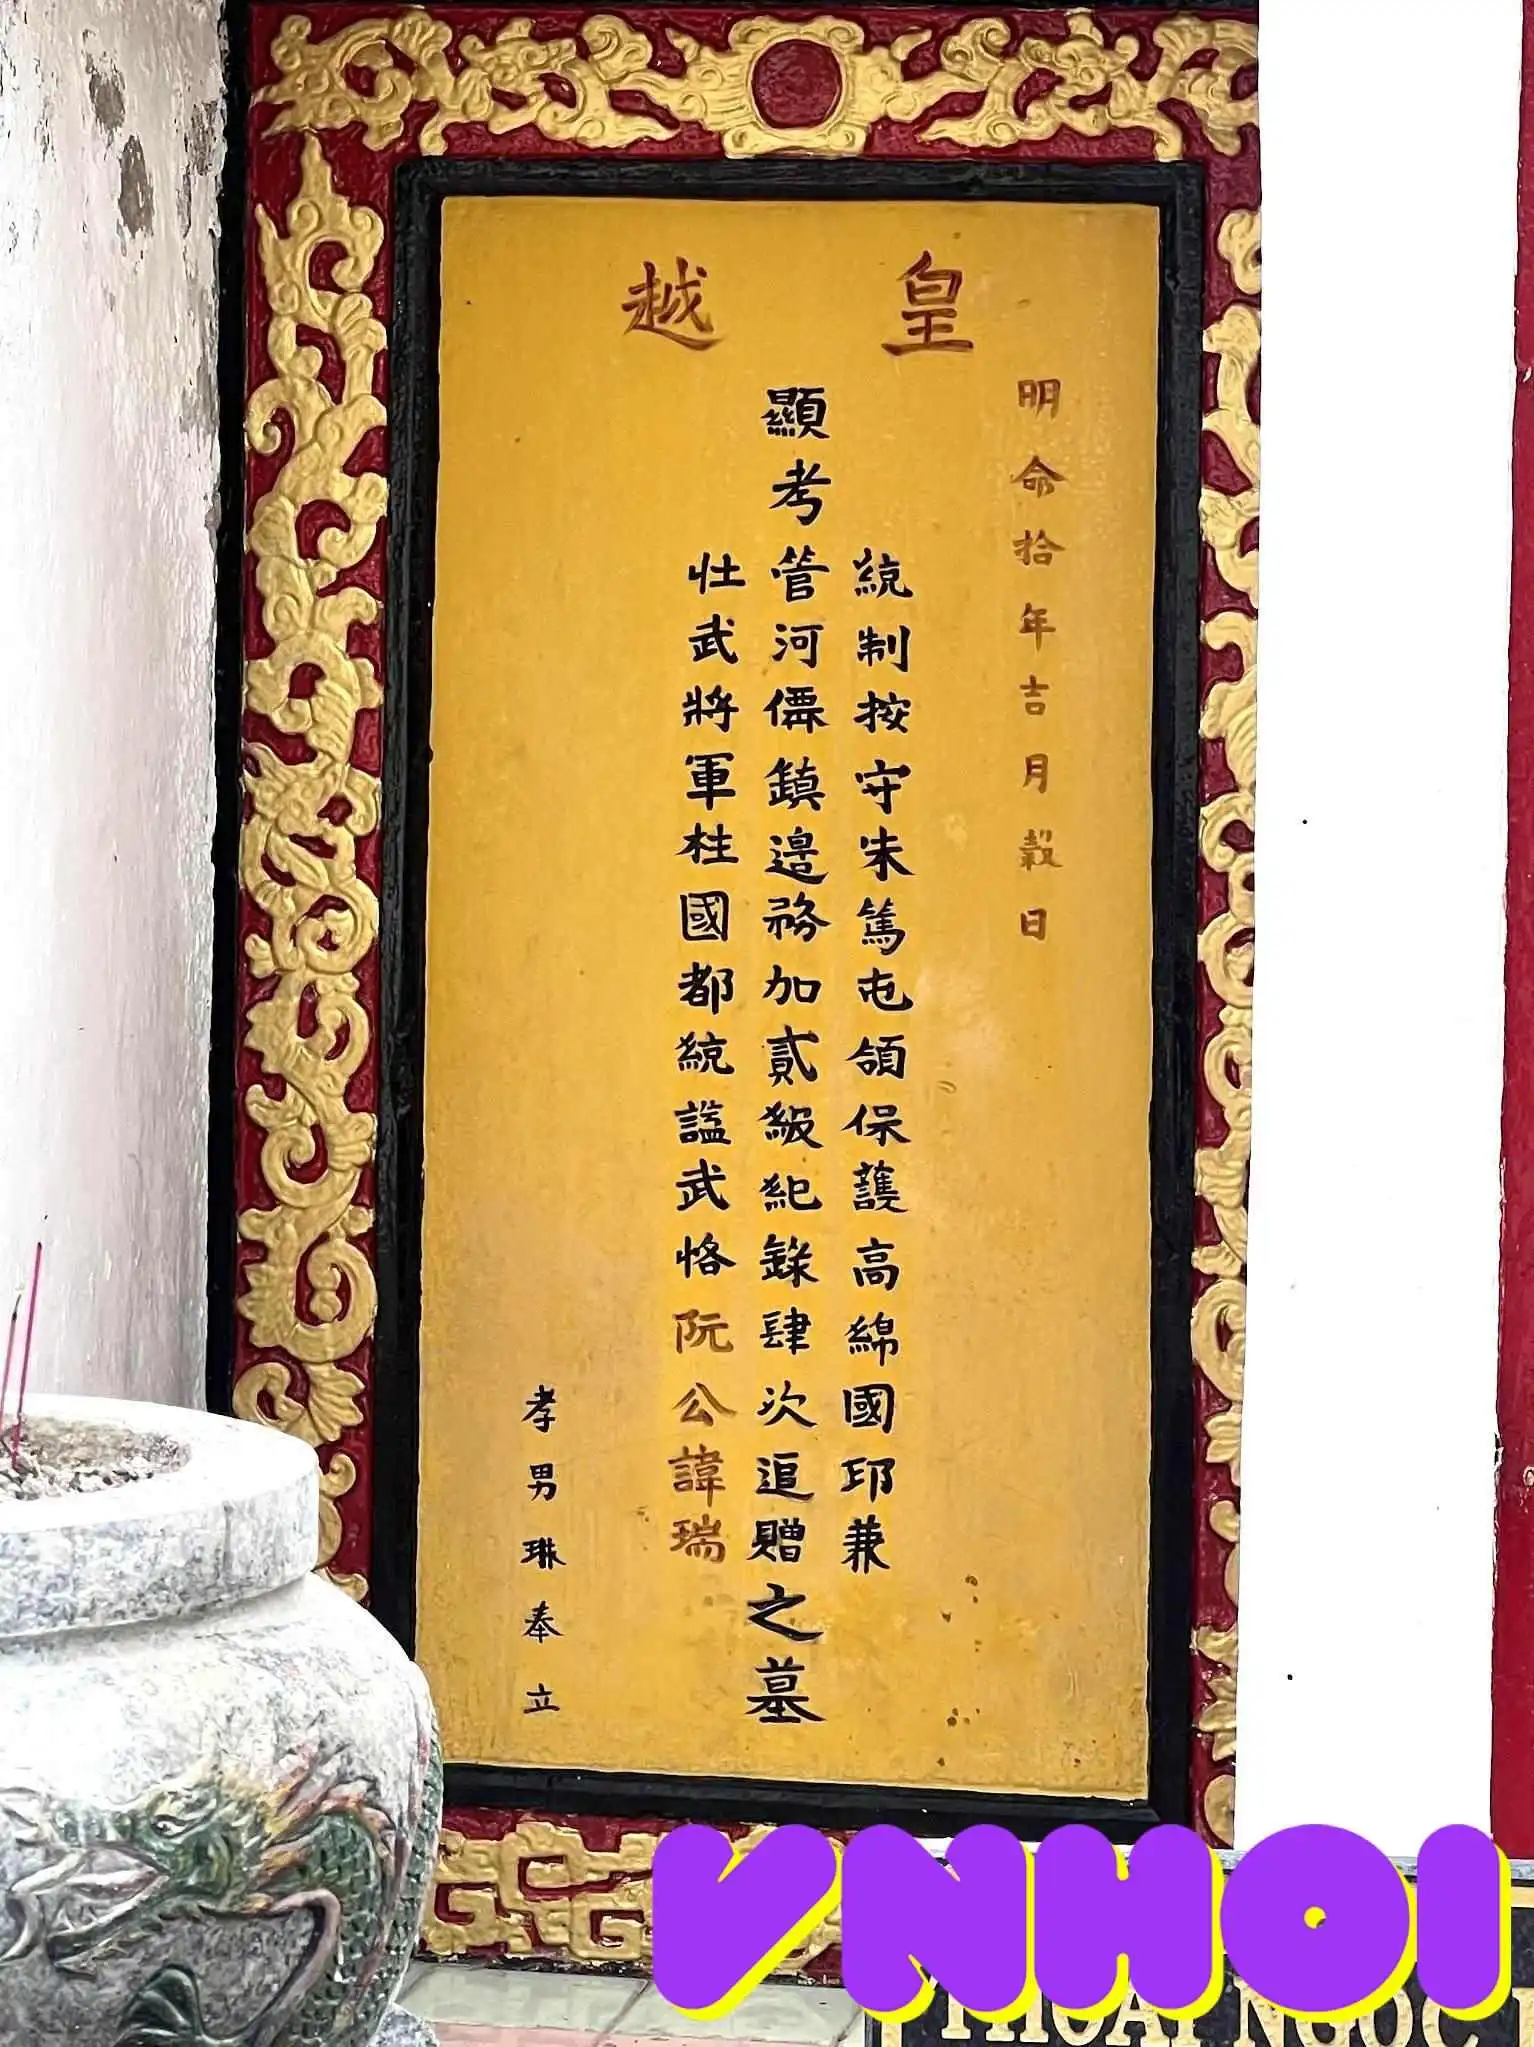 皇越
明命拾年吉月穀日
統制按守朱篤屯領保護高綿國印兼
顯考管河僊鎮邊務加貳級紀錄肆次追贈之墓
壯武將軍柱國都統謚武恪阮公諱瑞
孝男琳奉立
VNHOI
THOẠI NGỌC